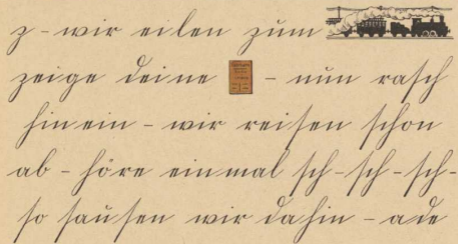 z - wir eilen zum
zeige deine - nun rasch
hinein - wir reisen schon
ab - höre einmal sch - sch - sch -
so sausen wir dahin - ade